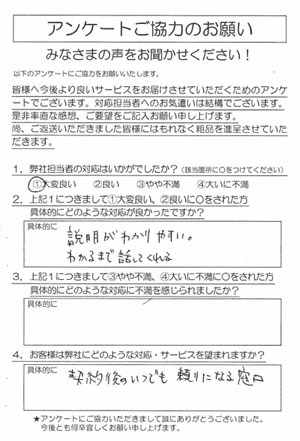 アンケートご協力のお願い
みなさまの声をお聞かせください！
以下のアンケートにご協力をお願いいたします。
皆様へ今後より良いサービスをお届けさせていただくためのアンケ
ートでございます。対応担当者へのお気遣いは結構でございます。
是非率直な感想、ご要望をご記入お願い申し上げます。
尚、ご返送いただきました皆様にはもれなく粗品を進呈させていた
だきます。
1．弊社担当者の対応はいかがでしたか？（該当箇所に○をつけてください）
①大変良い ②良い ③やや不満 ④大いに不満
2．上記1につきまして①大変良い、②良いに○をされた方
具体的にどのような対応が良かったですか？
具体的に
説明がわかりやすい。
わかるまで話してくれる
3．上記1につきまして③やや不満、④大いに不満に○をされた方
具体的にどのような対応に不満を感じられましたか？
具体的に
4．お客様は弊社にどのような対応・サービスを望まれますか？
具体的に
契約後のいつでも頼りになる窓口
★アンケートにご協力いただきまして誠にありがとうございました。
今後とも何卒宜しくお願い申し上げます。